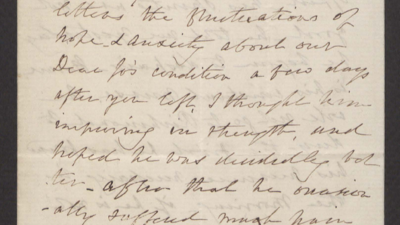 letters the fluctuations of
hope & anxiety about our
Dear Jo's condition a few days
after you left, I thought him
improving in strength, and
hoped he was decidedly bet
ter - after that he occasion
-ally suffered much pain